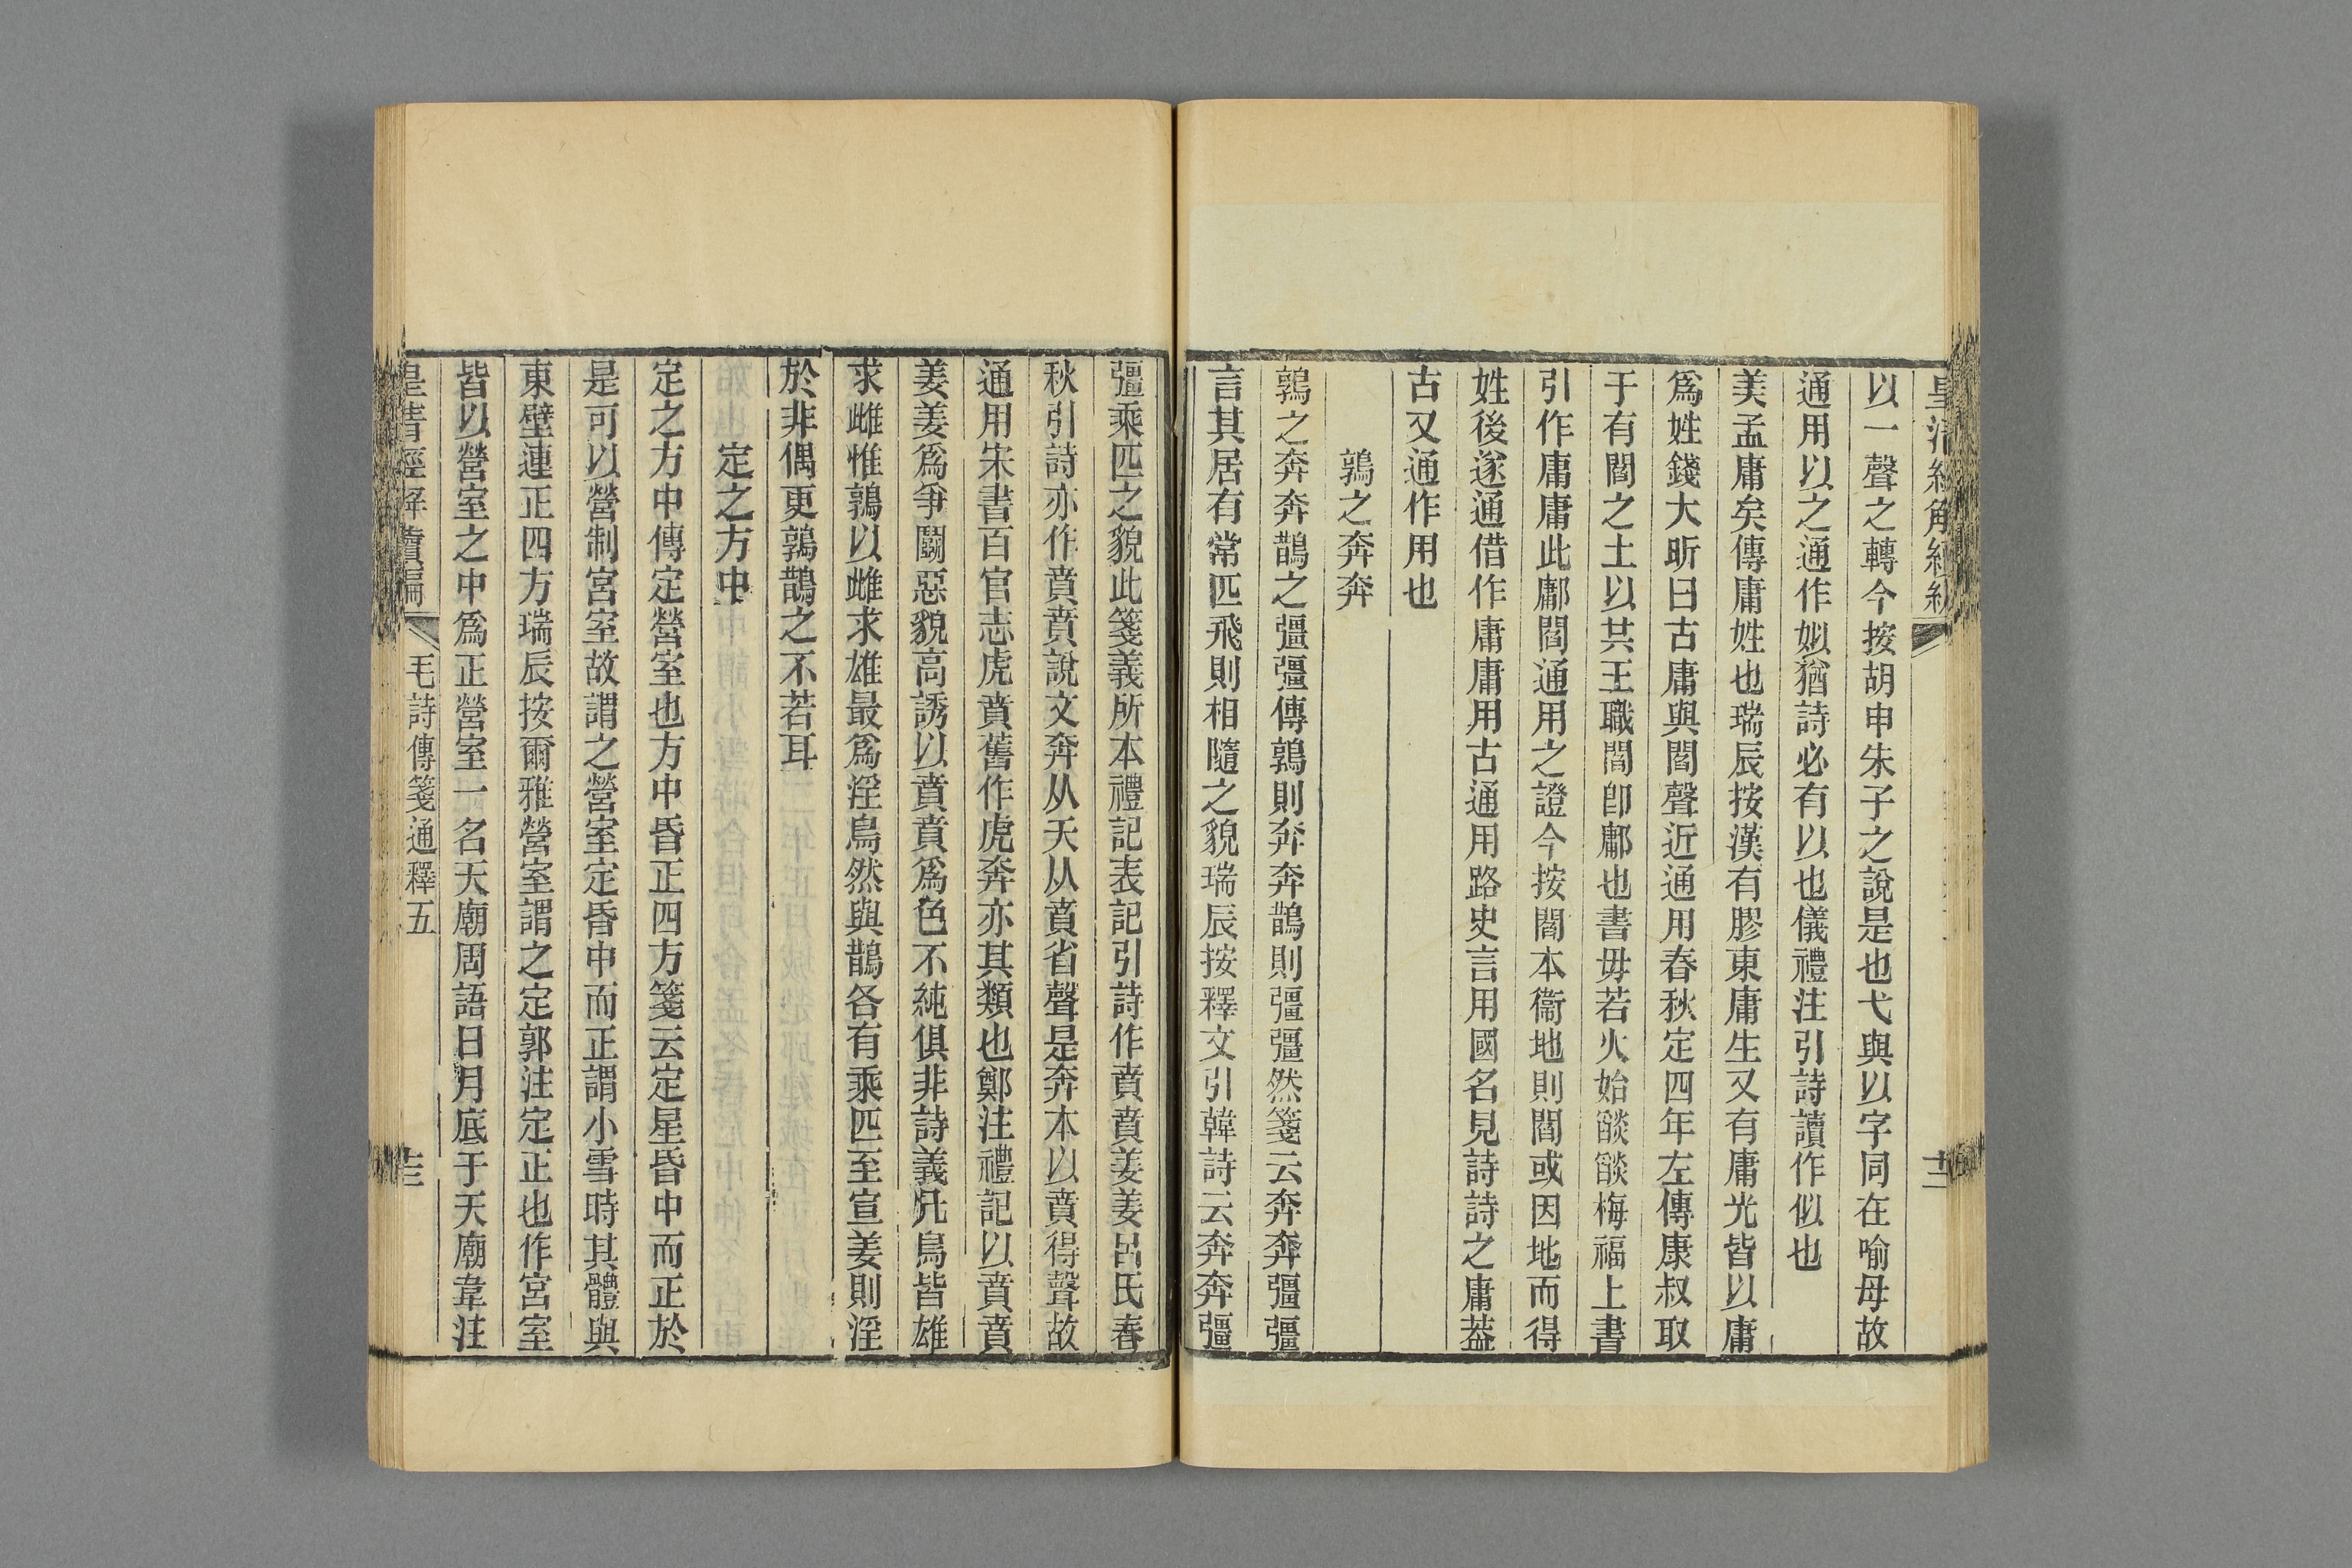 以一聲之轉今按胡申朱子之說是也弋與以字同在喻母故
通用以之通作姒猶詩必有以也儀禮注引詩讀作似也
美孟庸矣傳庸姓也瑞辰按漢有膠東庸生又有庸光皆以庸
爲姓錢大昕曰古庸與閻聲近通用春秋定四年左傳康叔取
于有閻之土以共王職閻卽鄘也書毋若火始燄燄梅福上書
引作庸庸此鄘閻通用之證今按閻本衞地則閻或因地而得
姓後遂通借作庸庸用古通用路史言用國名見詩詩之庸葢
古又通作用也
鶉之奔奔
鶉之奔奔鵲之彊彊傳鶉則奔奔鵲則彊彊然箋云奔奔彊彊
言其居有常匹飛則相隨之貌瑞辰按釋文引韓詩云奔奔彊
彊乘匹之貌此箋義所本禮記表記引詩作賁賁姜姜呂氏春
秋引詩亦作賁賁說文奔从夭从賁省聲是奔本以賁得聲故
通用宋書百官志虎賁舊作虎奔亦其類也鄭注禮記以賁賁
姜姜爲爭鬭惡貌高誘以賁賁爲色不純俱非詩義凡鳥皆雄
求雌惟鶉以雌求雄最爲淫鳥然與鵲各有乘匹至宣姜則淫
於非偶更鶉鵲之不若耳
定之方中
定之方中傳定營室也方中昏正四方箋云定星昏中而正於
是可以營制宮室故謂之營室定昏中而正謂小雪時其體與
東壁連正四方瑞辰按爾雅營室謂之定郭注定正也作宮室
皆以營室之中爲正營室一名天廟周語日月底于天廟韋注
毛詩傳箋通釋五